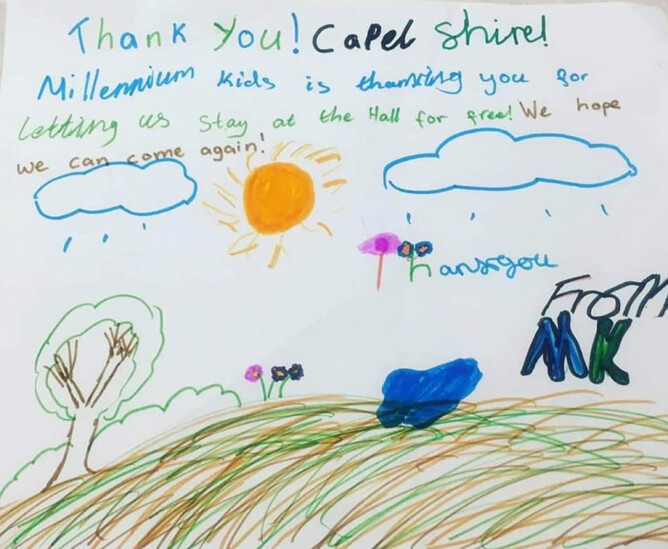 Thank You! Capel Shire!
Millennium Kids is thanking you for
Letting us stay at the Hall for free! We hope
we can come again!
hankyou
From
MK